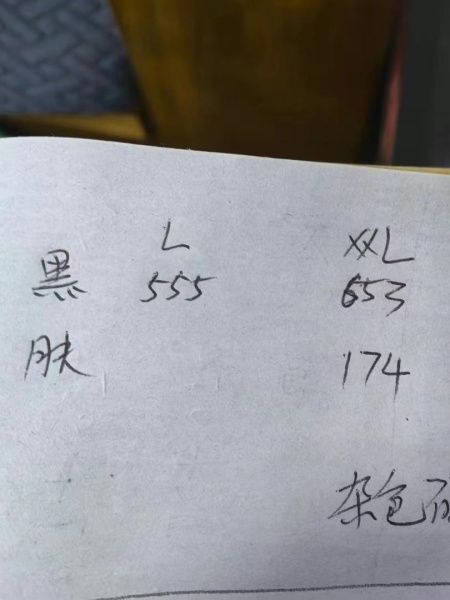 L XXL
黑 555 653
肤 174
杂色